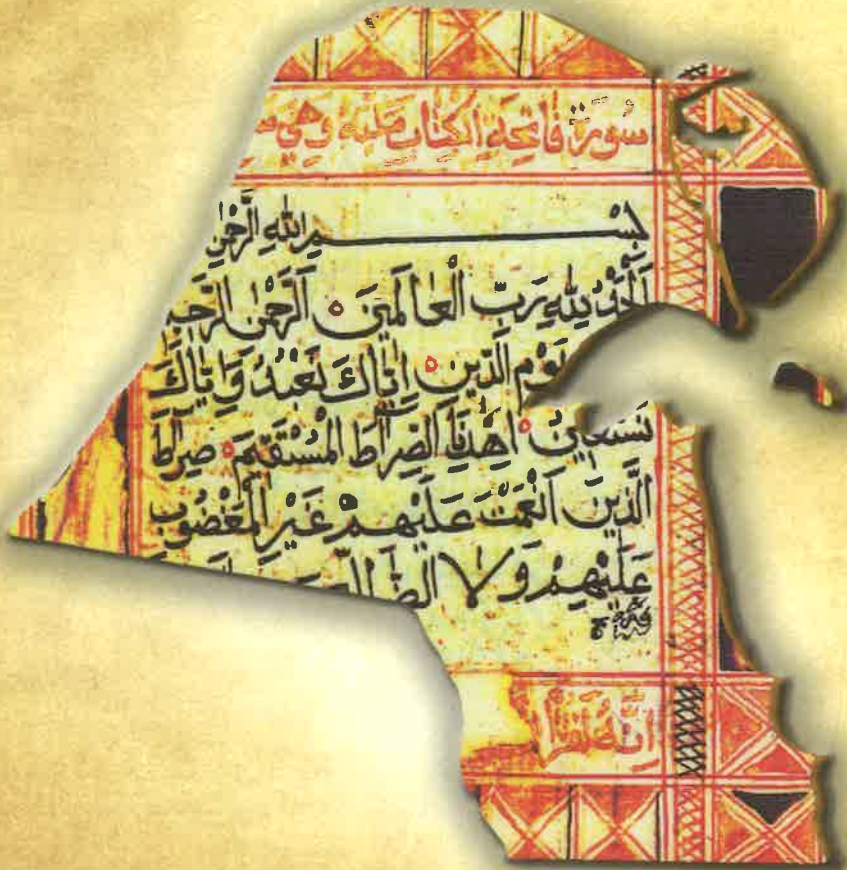 سُورَةُ فَاتِحَةِ الكِتَابِ مَكِّيَّة وَهِيَ
بِسْمِ اللهِ الرَّحْمٰنِ
اَلْحَمْدُ لِلّٰهِ رَبِّ الْعَالَمِينَ الرَّحْمٰنِ الرَّحِيمِ
يَوْمِ الدِّينِ اِيَّاكَ نَعْبُدُ وَاِيَّاكَ
نَسْتَعِينُ اِهْدِنَا الصِّرَاطَ الْمُسْتَقِيمَ صِرَاطَ
الَّذِينَ اَنْعَمْتَ عَلَيْهِمْ غَيْرِ الْمَغْضُوبِ
عَلَيْهِمْ وَلَا
اِنَّهُ